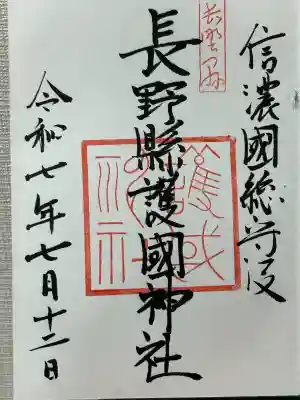 信濃國総守護
長野縣護國神社
令和七年七月十二日